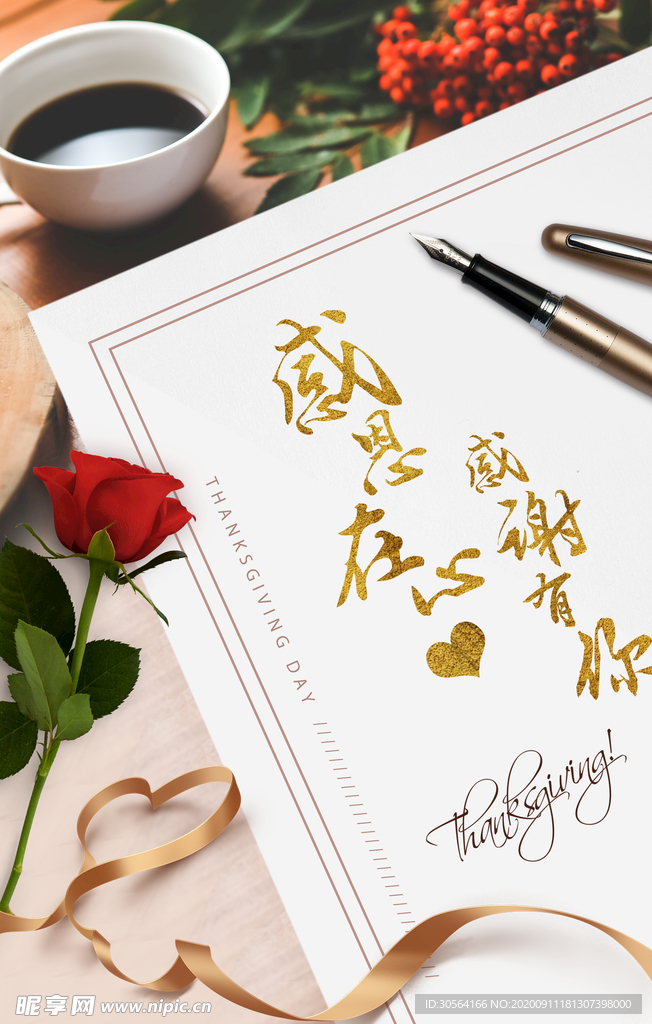 感恩在心
感谢有你
THANKSGIVING DAY
Thanksgiving!
昵享网 www.nipic.cn
ID:30564166 NO:20200911181307398000